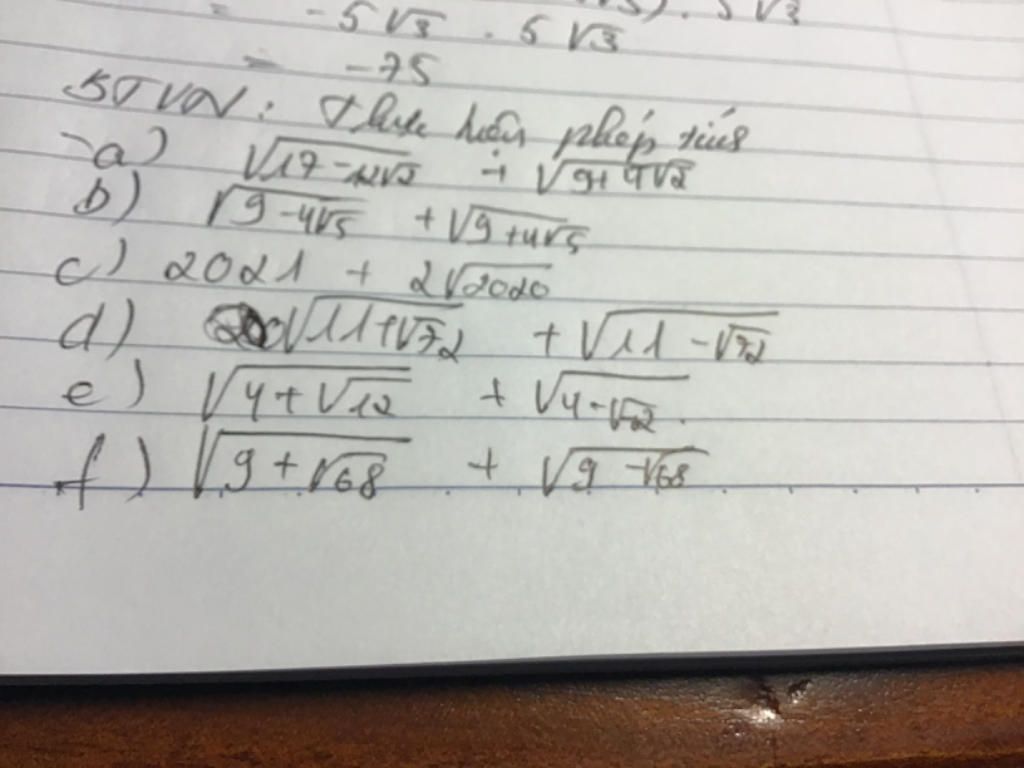 = -5√3 . 5√3
= -75
BTVN : Thực hiện phép tính
a) √(17-12√2) + √(9+4√2)
b) √(9-4√5) + √(9+4√5)
c) 2021 + 2√2020
d) √(11+√72) + √(11-√72)
e) √(4+√12) + √(4-√12) .
f) √(9+√68) + √(9-√68)